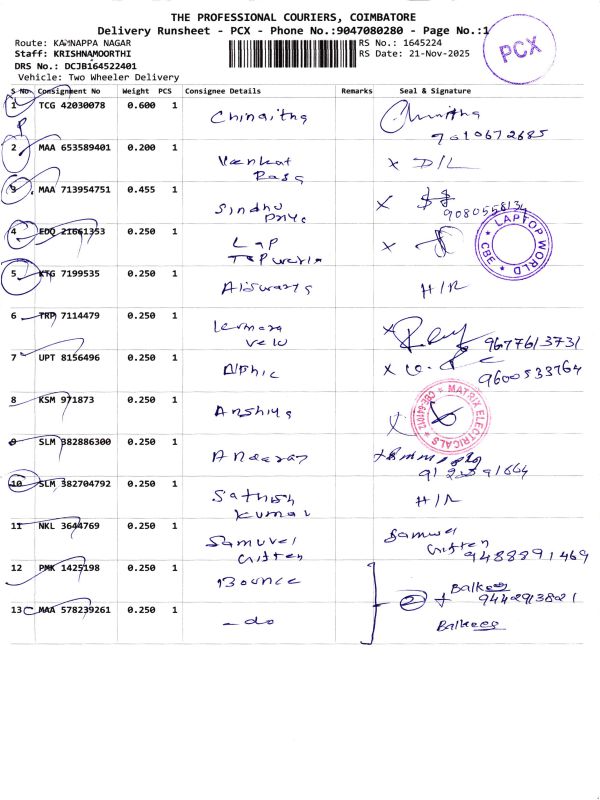 THE PROFESSIONAL COURIERS, COIMBATORE
Delivery Runsheet - PCX - Phone No.:9047080280 - Page No.:1
Route: KANNAPPA NAGAR
RS No.: 1645224
Staff: KRISHNAMOORTHI
RS Date: 21-Nov-2025
DRS No.: DCJB164522401
Vehicle: Two Wheeler Delivery
PCX
S No Consignment No Weight PCS Consignee Details Remarks Seal & Signature
1 TCG 42030078 0.600 1
P
2 MAA 653589401 0.200 1 Venkat x D/L
3 MAA 713954751 0.455 1 Sindhu x
9080558134
4 EDQ 21661353 0.250 1 Lap x
LAPTOP WORLD * CBE *
5 KTG 7199535 0.250 1 H/R
6 TRP 7114479 0.250 1 x
velu 9677613731
7 UPT 8156496 0.250 1 x
9600533764
8 KSM 971873 0.250 1 Anshiya x
MATRIX ELECTRICALS * CBE-641012 *
9 SLM 382886300 0.250 1
10 SLM 382704792 0.250 1 Sathish H/R
Kumar
11 NKL 3644769 0.250 1 Samuvel Samuel
9488891469
12 PMK 1425198 0.250 1 Bounce Balkees
2 9442913821
13 MAA 578239261 0.250 1 - do Balkees